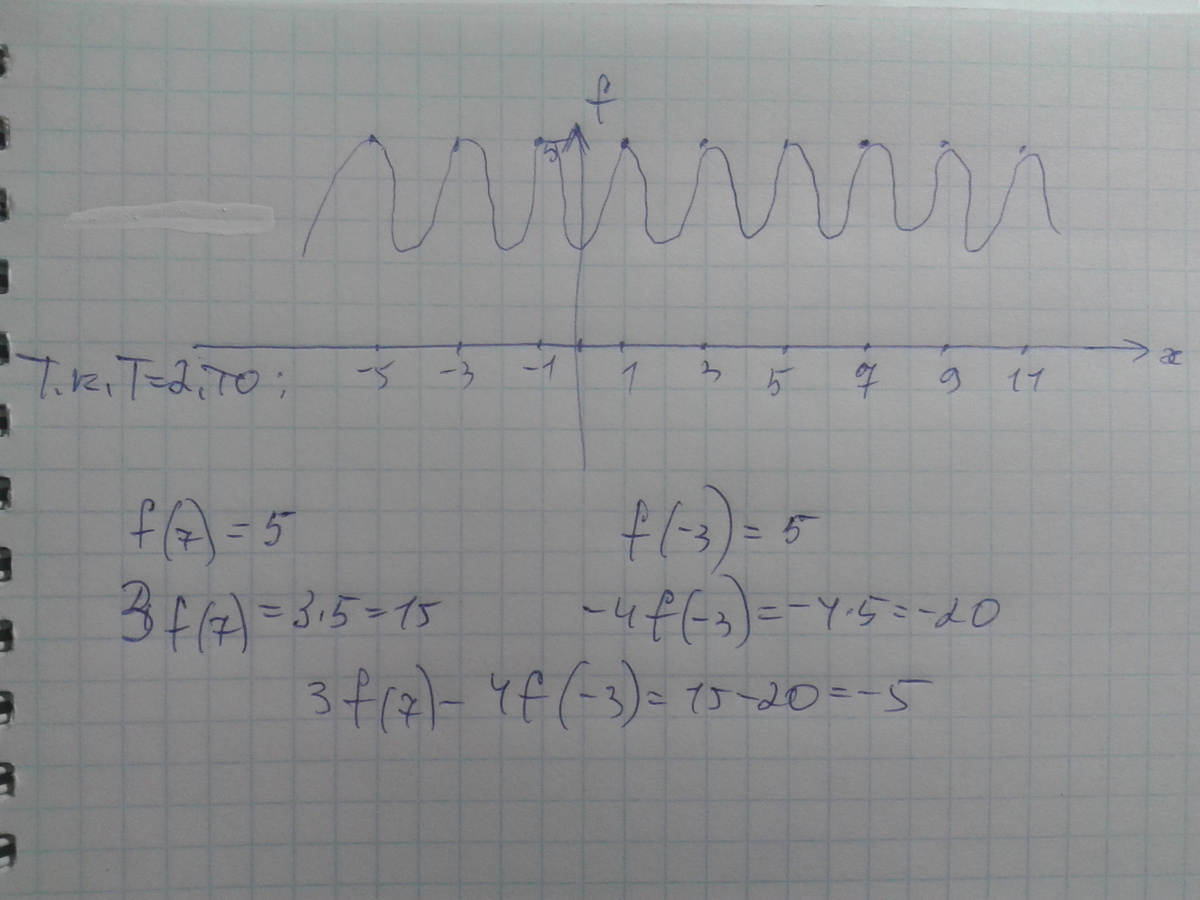 f
5
-5 -3 -1 1 3 5 7 9 11 x
Т.к. T=2, то:
f(7) = 5 f(-3) = 5
3f(7) = 3·5 = 15 -4f(-3) = -4·5 = -20
3f(7) - 4f(-3) = 15-20 = -5